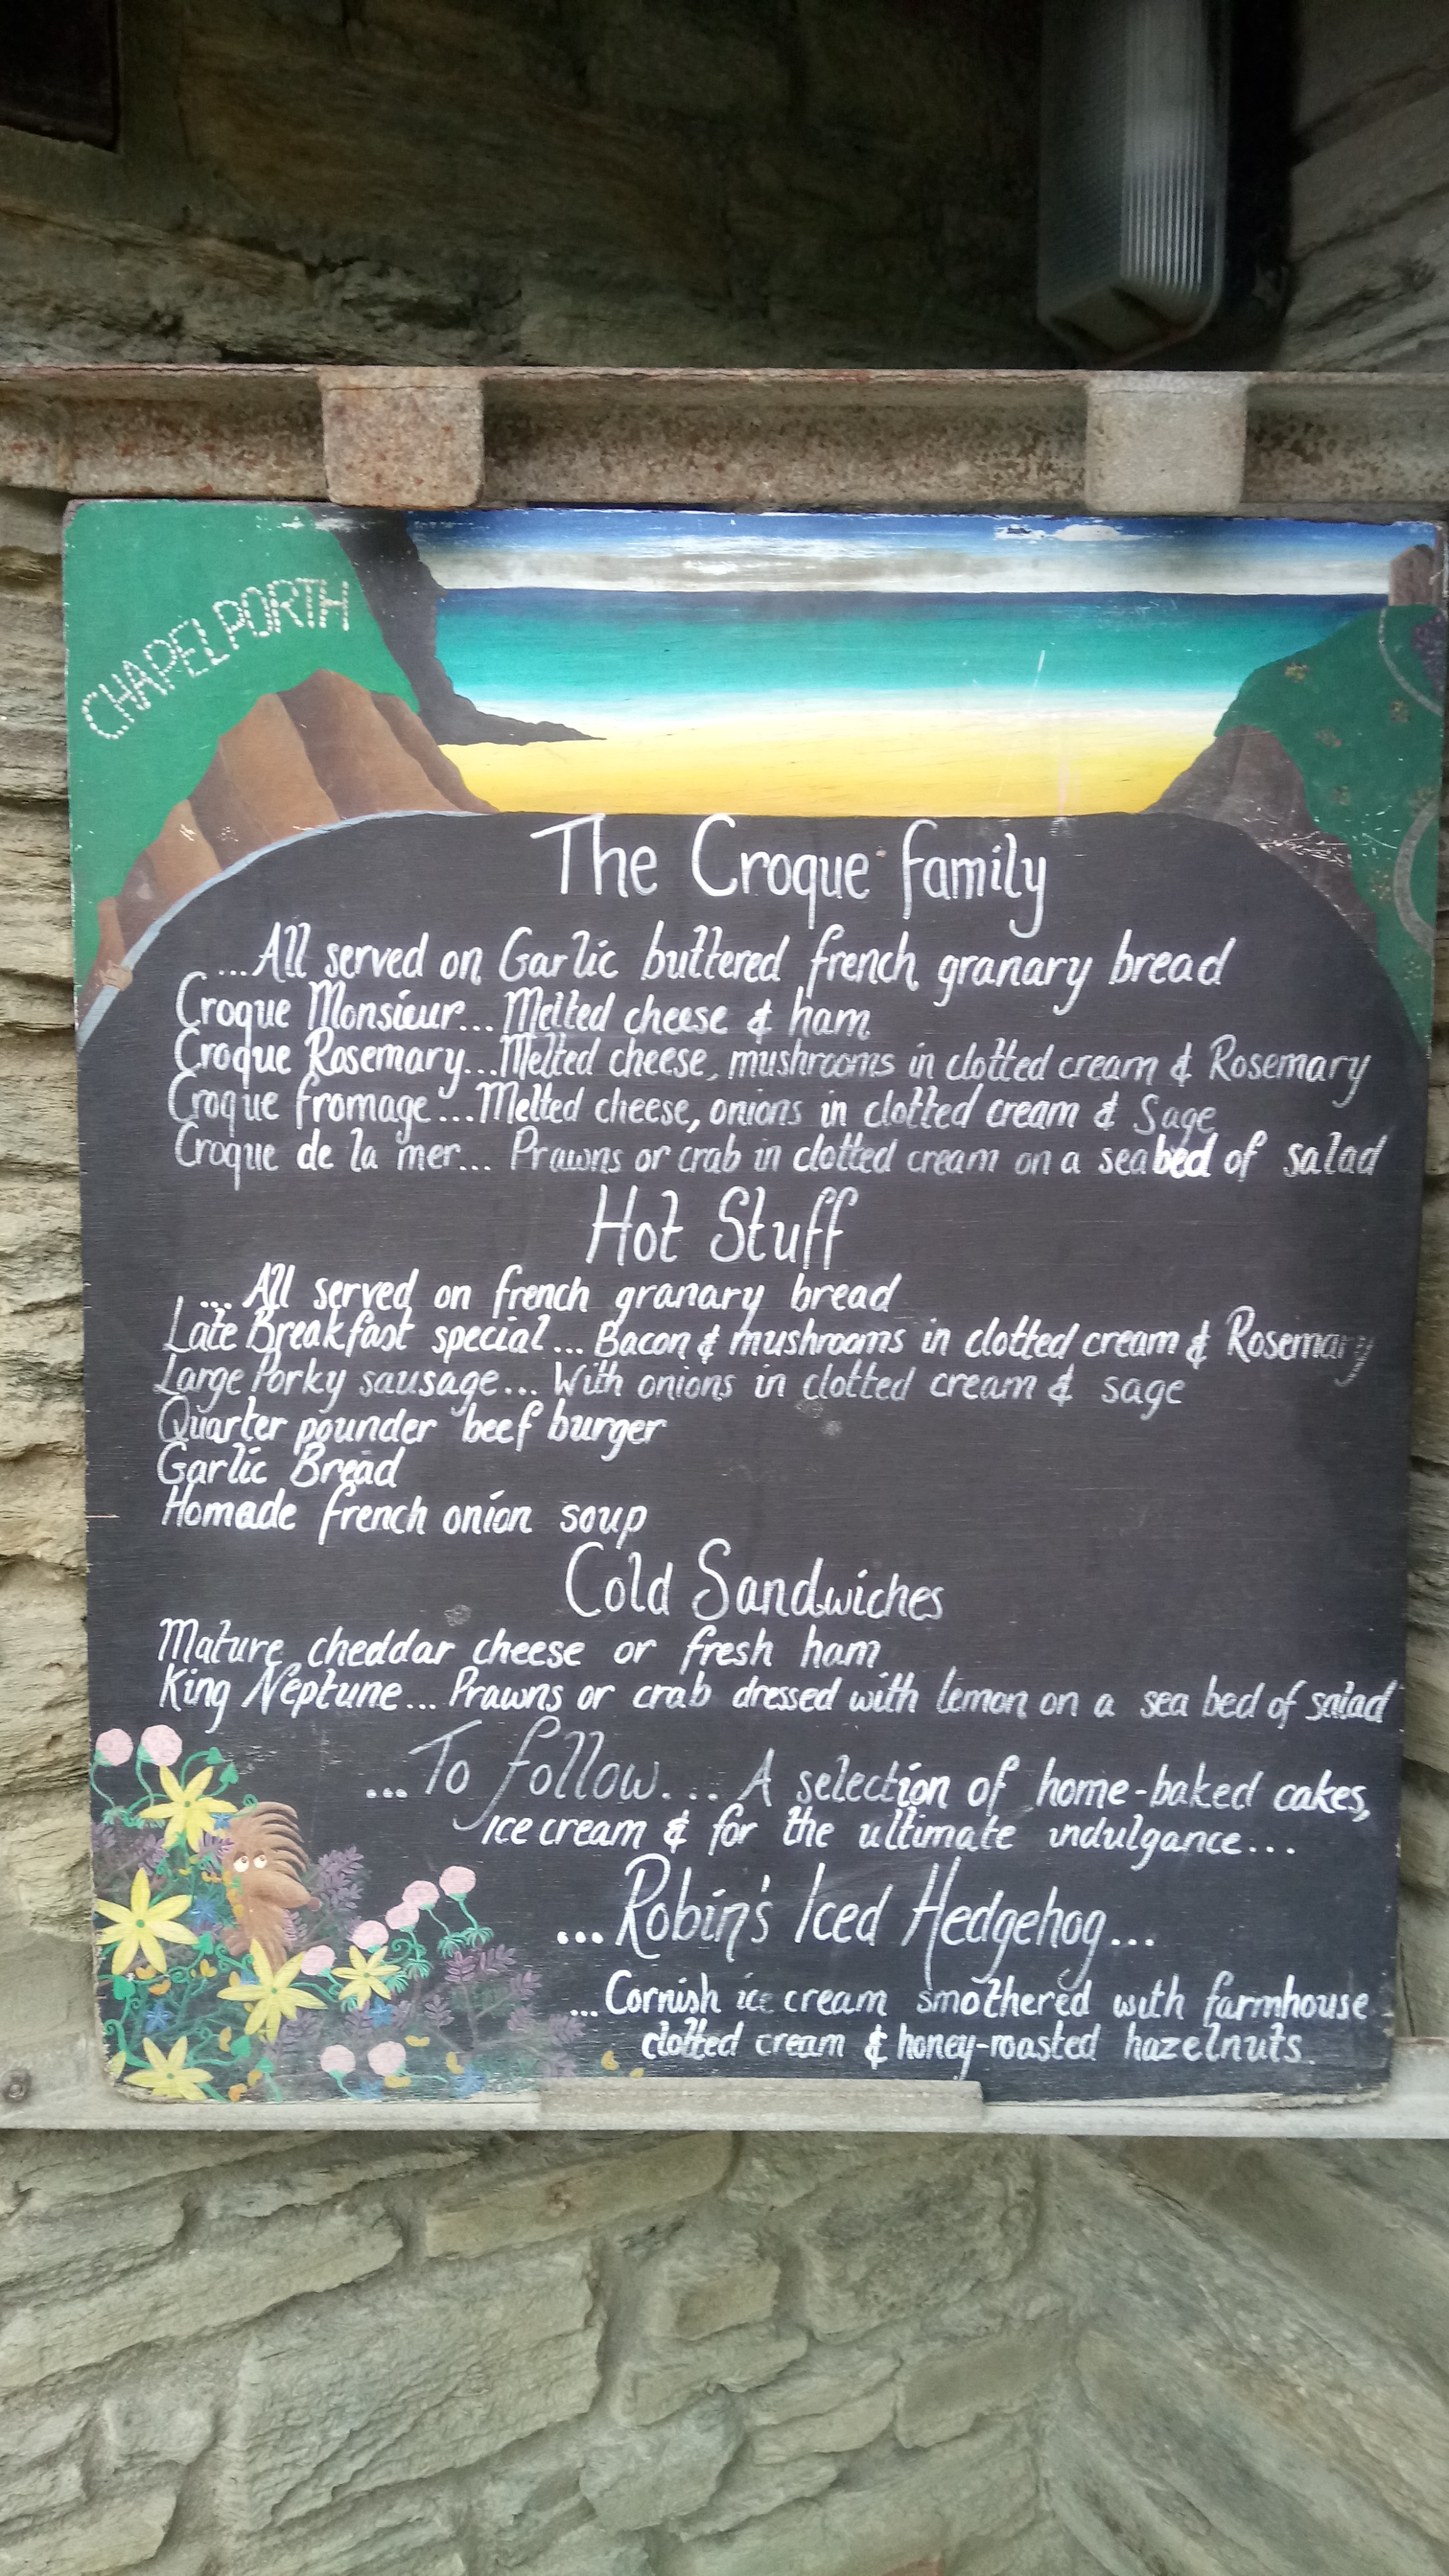 CHAPELPORTH
The Croque family
...All served on Garlic buttered french granary bread
Croque Monsieur... Melted cheese & ham
Croque Rosemary...Melted cheese, mushrooms in clotted cream & Rosemary
Croque fromage...Melted cheese, onions in clotted cream & Sage
Croque de la mer... Prawns or crab in clotted cream on a sea bed of salad
Hot Stuff
... All served on french granary bread
Late Breakfast special... Bacon & mushrooms in clotted cream & Rosemary
Large Porky sausage... With onions in clotted cream & sage
Quarter pounder beef burger
Garlic Bread
Homade french onion soup
Cold Sandwiches
Mature cheddar cheese or fresh ham
King Neptune... Prawns or crab dressed with lemon on a sea bed of salad
...To follow... A selection of home-baked cakes,
ice cream & for the ultimate indulgance...
...Robin's Iced Hedgehog...
...Cornish ice cream smothered with farmhouse
clotted cream & honey-roasted hazelnuts.